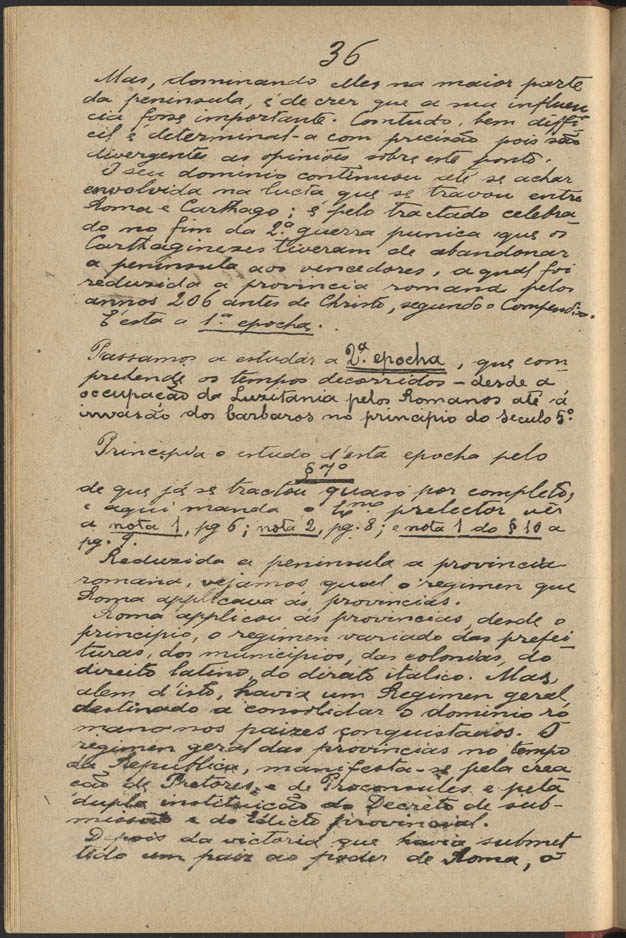 36
Mas, dominando elles na maior parte
da peninsula, é de crer que a sua influen
cia fosse importante. Contudo, bem diffi-
cil é determinal-a com precisão pois são
divergentes as opiniões sobre este ponto.
O seu dominio continuou até se achar
envolvida na lucta que se travou entre
Roma e Carthago; e pelo tractado celebra
do no fim da 2.ª guerra punica que os
Carthaginezes tiveram de abandonar
a peninsula aos vencedores, a qual foi
reduzida a provincia romana pelos
annos 206 antes de Christo, segundo o Compendio.
É esta a 1.ª epocha.
Passamos a estudar a 2.ª epocha, que com-
prehende os tempos decorridos - desde a
occupação da Luzitania pelos Romanos até á
invasão dos barbaros no principio do seculo 5.º
Principia o estudo d'esta epocha pelo
§ 7º
de que já se tractou quasi por completo,
e aqui manda o Exmo prelector vêr
a nota 1, pg 6; nota 2, pg. 8; e nota 1 do § 10 a
pg. 9.
Reduzida a peninsula a provincia
romana, vejamos qual o regimen que
Roma applicava ás provincias.
Roma applicou ás provincias, desde o
principio, o regimen variado das prefei-
turas, dos municipios, das colonias, do
direito latino, do direito italico. Mas,
alem d'isto, havia um Regimen geral,
destinado a consolidar o dominio ro
mano nos paizes conquistados. O
regimen geral das provincias no tempo
da Republica, manifesta-se pela crea
ção de Pretores, e de Proconsules e pela
dupla instituição do Decreto de sub-
missão e do Edicto provincial.
Depois da victoria que havia submet
tido um paiz ao poder de Roma, o